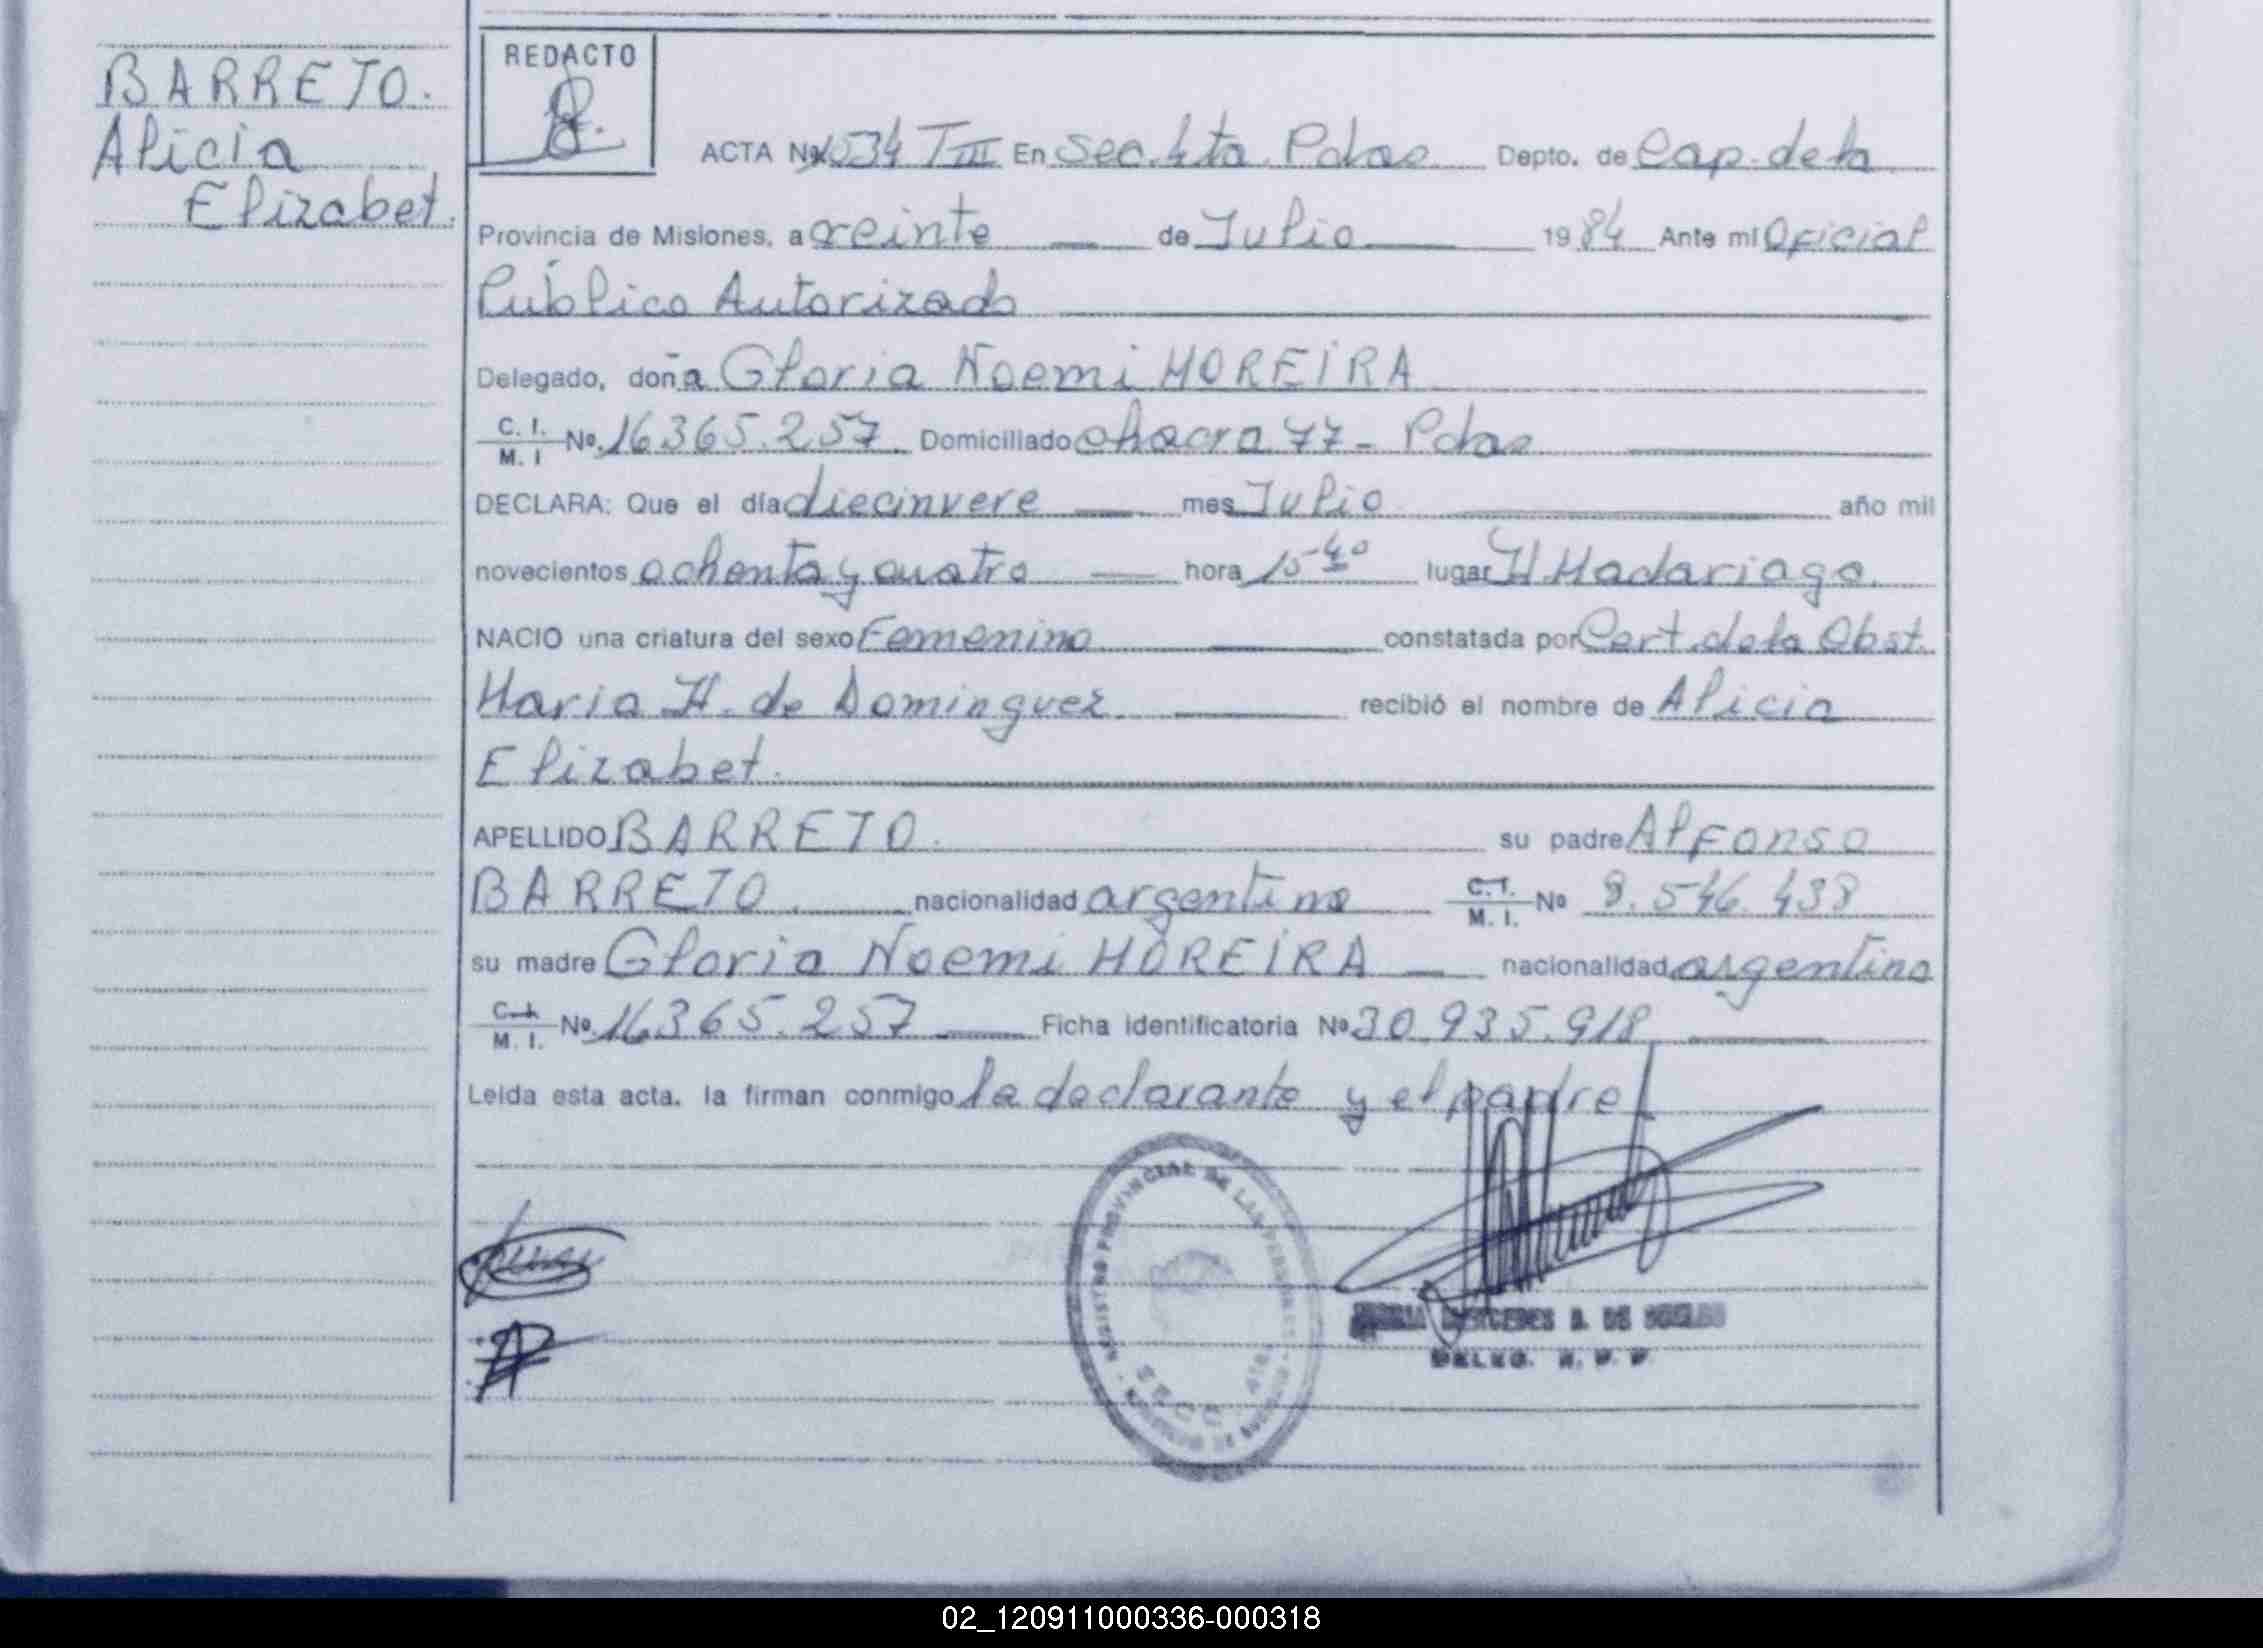 BARRETO.
Alicia
Elizabet.
REDACTO
ACTA Nº 1534 T III En Sec. 4ta. Pdas Depto. de Cap. de la
Provincia de Misiones, a veinte de Julio 1984 Ante mi Oficial
Público Autorizado
Delegado, doña Gloria Noemi MOREIRA
C. I. M. I Nº. 16.365.257. Domiciliado chacra 77 - Pdas
DECLARA: Que el día diecinueve mes Julio año mil
novecientos ochenta y cuatro hora 15-40 lugar H. Madariaga.
NACIO una criatura del sexo Femenino constatada por Cert. de la Obst.
Maria H. de Dominguez recibió el nombre de Alicia
Elizabet.
APELLIDO BARRETO. su padre Alfonso
BARRETO. nacionalidad argentino C.I. M. I. Nº 8.546.438
su madre Gloria Noemi MOREIRA nacionalidad argentina
C.I. M. I. Nº. 16.365.257 Ficha identificatoria Nº 30.935.918
Leida esta acta, la firman conmigo la declarante y el padre
REGISTRO PROVINCIAL DE LAS PERSONAS
SECC. 4ta.
MERCEDES B. DE
DELEG. R. P. P.
02_120911000336-000318